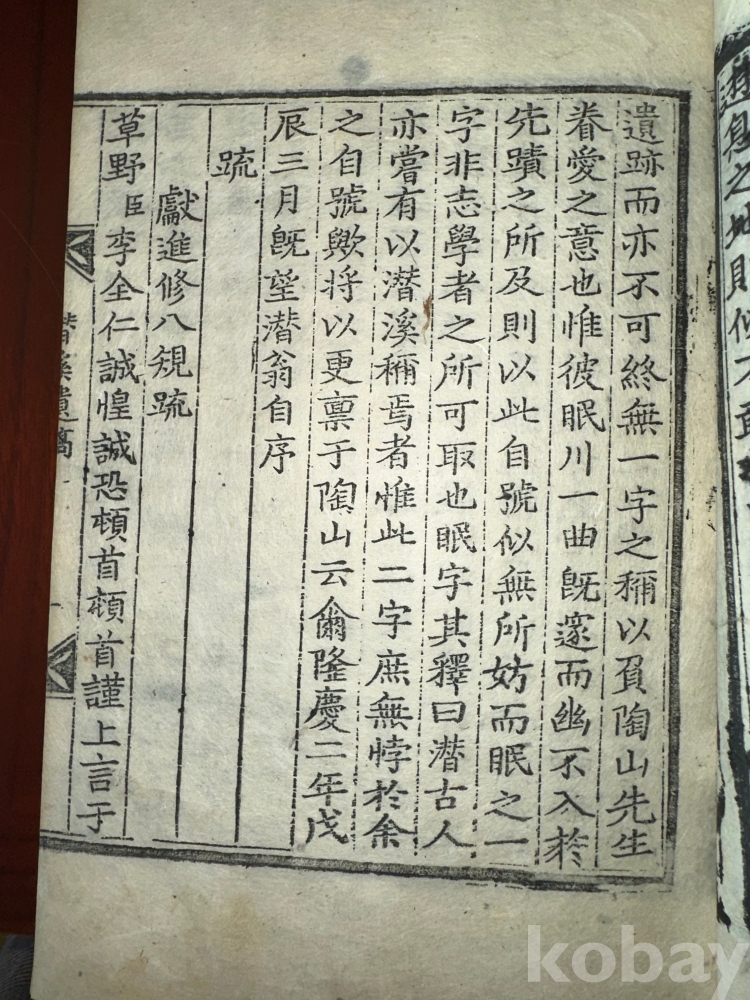 遺跡而亦不可終無一字之稱以負陶山先生
眷愛之意也惟彼眠川一曲旣邃而幽不入於
先蹟之所及則以此自號似無所妨而眠之一
字非志學者之所可取也眠字其釋曰潛古人
亦嘗有以潛溪稱焉者惟此二字庶無悖於余
之自號歟將以更禀于陶山云爾隆慶二年戊
辰三月旣望潛翁自序
疏
獻進修八規疏
草野臣李全仁誠惶誠恐頓首頓首謹上言于
潛溪遺稿
之地則似不
kobay